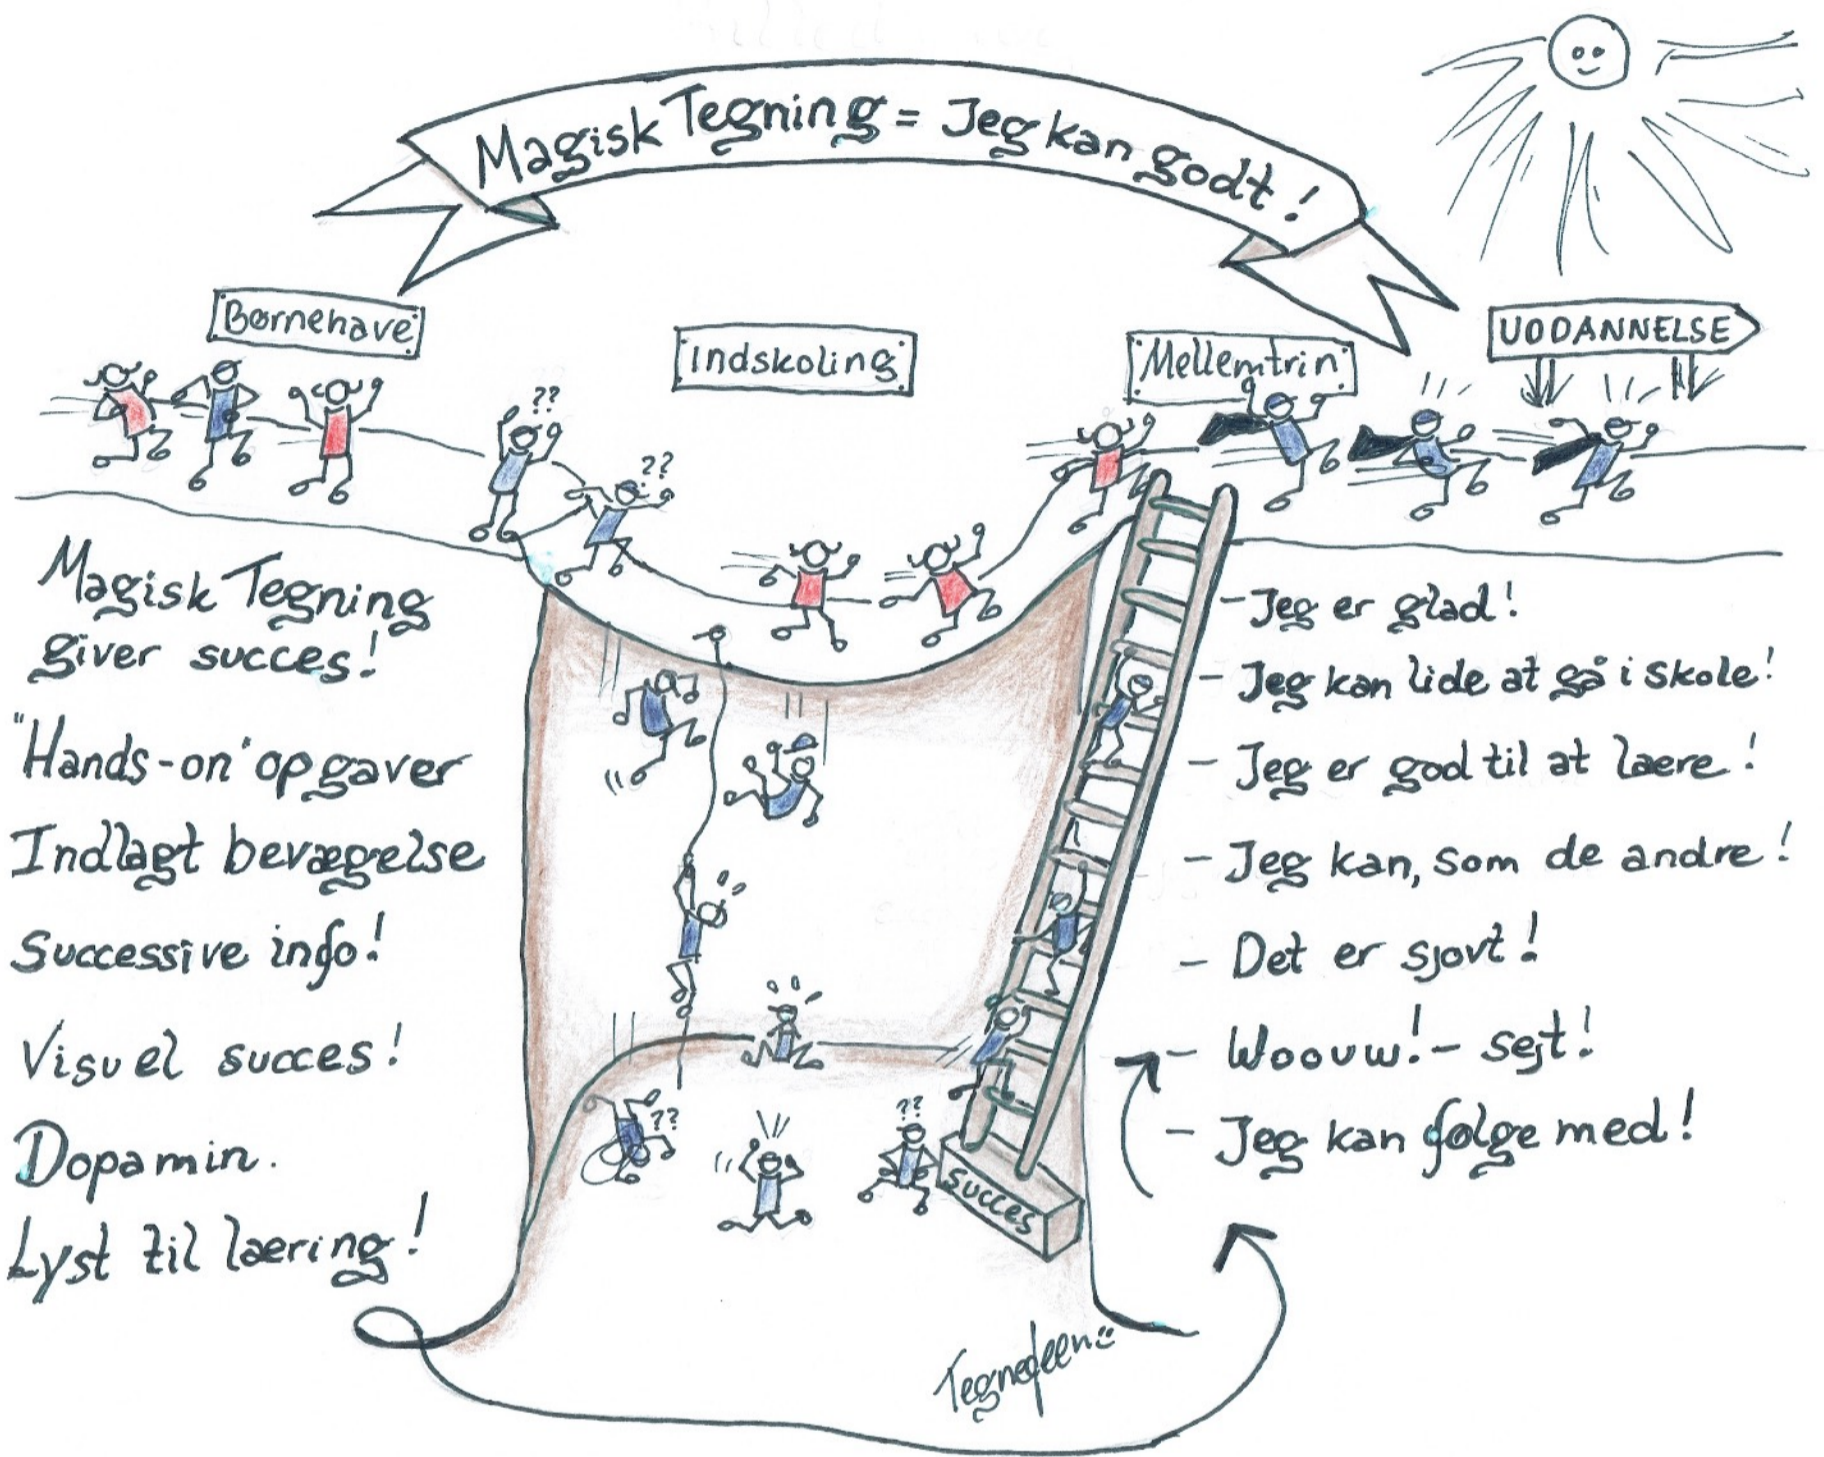 Magisk Tegning = Jeg kan godt!
Børnehave
Indskoling
Mellemtrin
UDDANNELSE
??
??
Magisk Tegning
giver succes!
"Hands-on" opgaver
Indlagt bevægelse
Successive info!
Visuel succes!
Dopamin.
Lyst til læring!
- Jeg er glad!
- Jeg kan lide at gå i skole!
- Jeg er god til at lære!
- Jeg kan, som de andre!
- Det er sjovt!
- Woouw! - sejt!
- Jeg kan følge med!
??
??
SUCCES
Tegnefeen